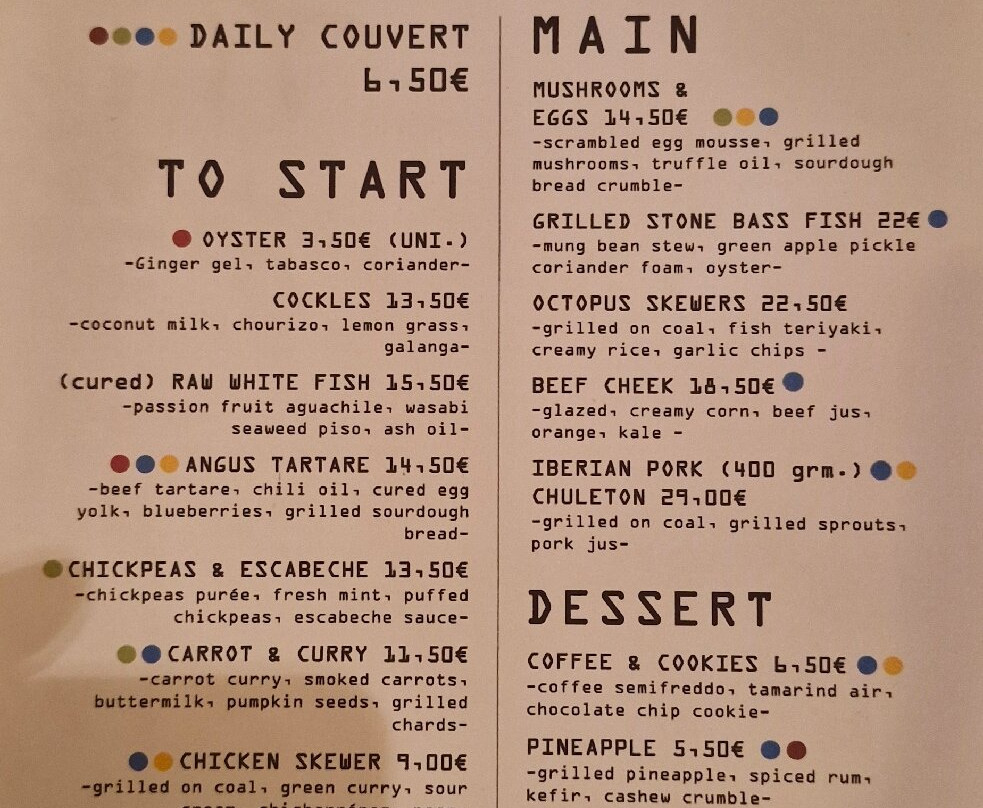 DAILY COUVERT
6,50€
TO START
OYSTER 3,50€ (UNI.)
-Ginger gel, tabasco, coriander-
COCKLES 13,50€
-coconut milk, chourizo, lemon grass,
galanga-
(cured) RAW WHITE FISH 15,50€
-passion fruit aguachile, wasabi
seaweed piso, ash oil-
ANGUS TARTARE 14,50€
-beef tartare, chili oil, cured egg
yolk, blueberries, grilled sourdough
bread-
CHICKPEAS & ESCABECHE 13,50€
-chickpeas purée, fresh mint, puffed
chickpeas, escabeche sauce-
CARROT & CURRY 11,50€
-carrot curry, smoked carrots,
buttermilk, pumpkin seeds, grilled
chards-
CHICKEN SKEWER 9,00€
-grilled on coal, green curry, sour
MAIN
MUSHROOMS &
EGGS 14,50€
-scrambled egg mousse, grilled
mushrooms, truffle oil, sourdough
bread crumble-
GRILLED STONE BASS FISH 22€
-mung bean stew, green apple pickle
coriander foam, oyster-
OCTOPUS SKEWERS 22,50€
-grilled on coal, fish teriyaki,
creamy rice, garlic chips -
BEEF CHEEK 18,50€
-glazed, creamy corn, beef jus,
orange, kale -
IBERIAN PORK (400 grm.)
CHULETON 29,00€
-grilled on coal, grilled sprouts,
pork jus-
DESSERT
COFFEE & COOKIES 6,50€
-coffee semifreddo, tamarind air,
chocolate chip cookie-
PINEAPPLE 5,50€
-grilled pineapple, spiced rum,
kefir, cashew crumble-